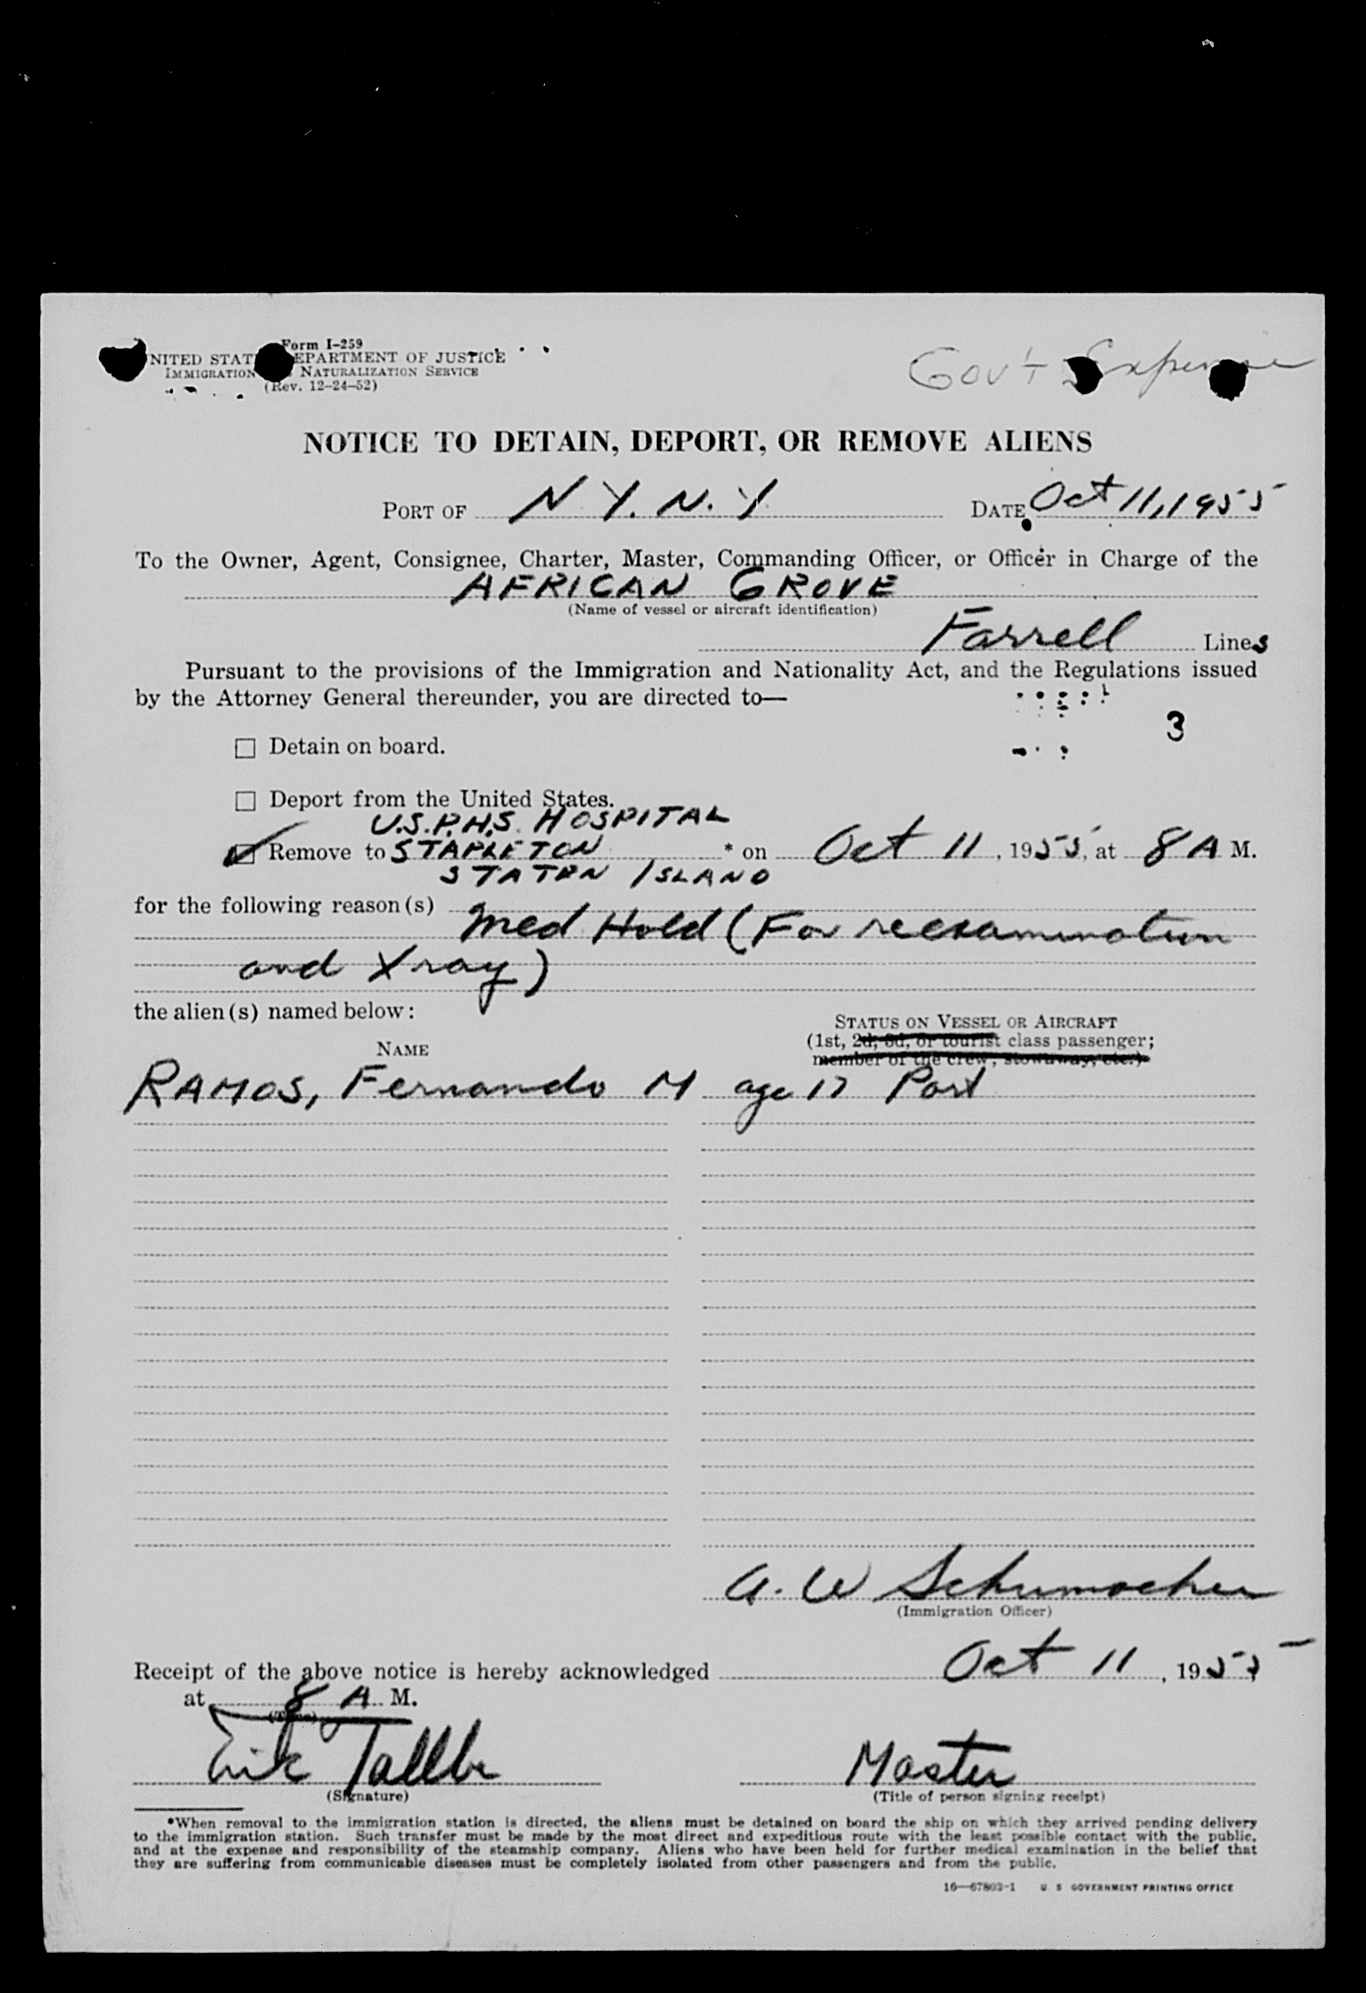 Form I-259
NITED STAT EPARTMENT OF JUSTICE
IMMIGRATION NATURALIZATION SERVICE
(Rev. 12-24-52)
Gov't Expense
NOTICE TO DETAIN, DEPORT, OR REMOVE ALIENS
PORT OF N.Y. N.Y DATE Oct 11, 1955
To the Owner, Agent, Consignee, Charter, Master, Commanding Officer, or Officer in Charge of the
AFRICAN GROVE
(Name of vessel or aircraft identification)
Farrell Lines
Pursuant to the provisions of the Immigration and Nationality Act, and the Regulations issued
by the Attorney General thereunder, you are directed to—
3
☐ Detain on board.
☐ Deport from the United States.
U.S.P.H.S. HOSPITAL
☑ Remove to STAPLETON * on Oct 11, 1955, at 8 A M.
STATEN ISLAND
for the following reason(s)
Med Hold (For reexamination
and Xray)
the alien(s) named below:
STATUS ON VESSEL OR AIRCRAFT
(1st, 2d, 3d, or tourist class passenger;
NAME
member of the crew, stowaway, etc.)
RAMOS, Fernando M age 17 Port
A. W Schumacher
(Immigration Officer)
Receipt of the above notice is hereby acknowledged Oct 11, 1955
at 8 A M.
(Time)
Erik Master
(Signature) (Title of person signing receipt)
*When removal to the immigration station is directed, the aliens must be detained on board the ship on which they arrived pending delivery
to the immigration station. Such transfer must be made by the most direct and expeditious route with the least possible contact with the public,
and at the expense and responsibility of the steamship company. Aliens who have been held for further medical examination in the belief that
they are suffering from communicable diseases must be completely isolated from other passengers and from the public.
16—67803-1 U S GOVERNMENT PRINTING OFFICE